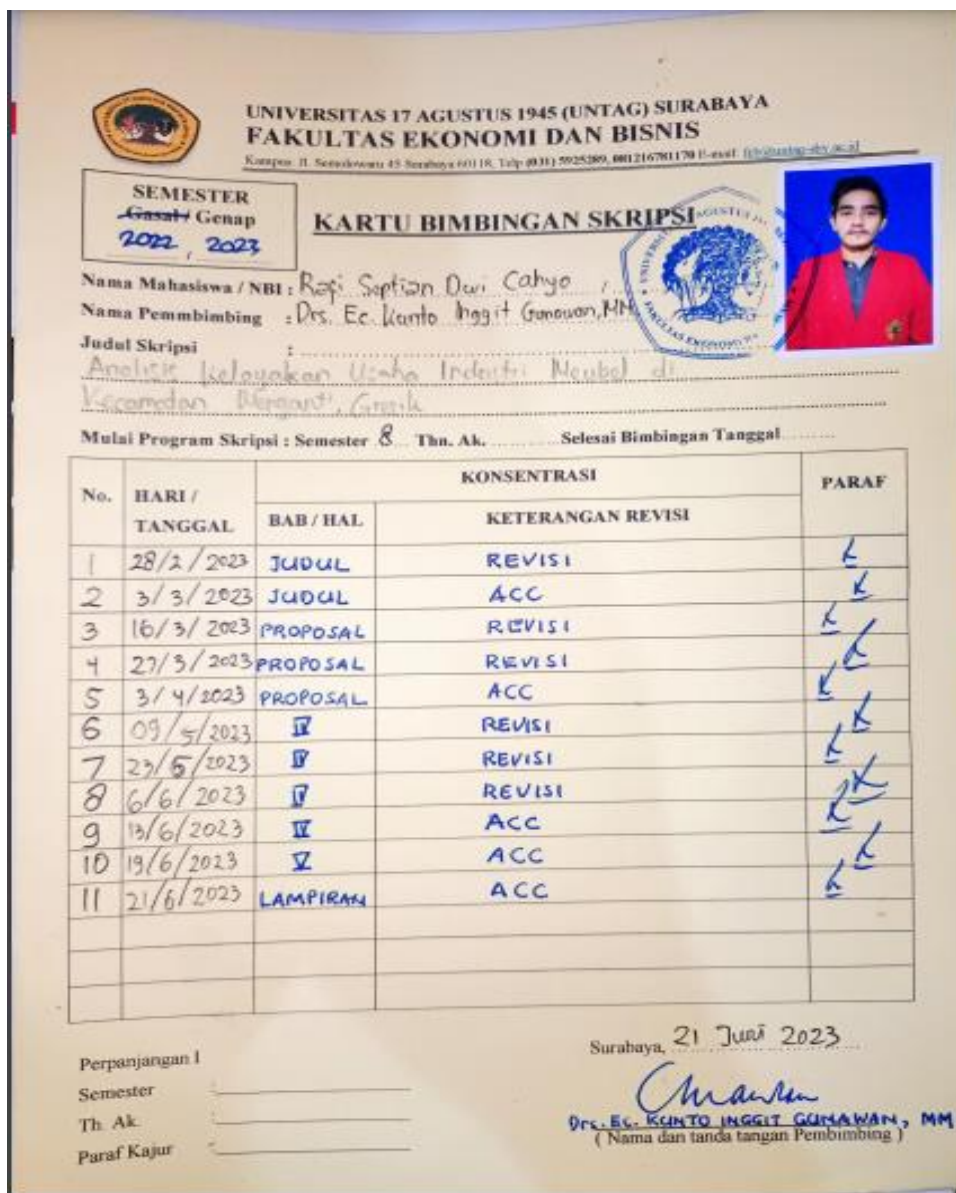 UNIVERSITAS 17 AGUSTUS 1945 (UNTAG) SURABAYA
FAKULTAS EKONOMI DAN BISNIS
Kampus: Jl. Semolowaru 45 Surabaya 60118, Telp (031) 5925289, 081216781170 E-mail: feb@untag-sby.ac.id
SEMESTER
Gasal / Genap
2022, 2023
KARTU BIMBINGAN SKRIPSI
Nama Mahasiswa / NBI : Rafi Septian Dwi Cahyo /
Nama Pemmbimbing : Drs. Ec. Kunto Inggit Gunawan, MM
Judul Skripsi :
Analisis Kelayakan Usaha Industri Meubel di
Kecamatan Menganti, Gresik
Mulai Program Skripsi : Semester 8 Thn. Ak. Selesai Bimbingan Tanggal
No. HARI / TANGGAL KONSENTRASI PARAF
BAB / HAL KETERANGAN REVISI
1 28/2/2023 JUDUL REVISI
2 3/3/2023 JUDUL ACC
3 16/3/2023 PROPOSAL REVISI
4 27/3/2023 PROPOSAL REVISI
5 3/4/2023 PROPOSAL ACC
6 09/5/2023 IV REVISI
7 23/5/2023 IV REVISI
8 6/6/2023 IV REVISI
9 13/6/2023 IV ACC
10 19/6/2023 V ACC
11 21/6/2023 LAMPIRAN ACC
Perpanjangan I
Semester :
Th. Ak. :
Paraf Kajur :
Surabaya, 21 Juni 2023
Drs. Ec. KUNTO INGGIT GUNAWAN, MM
( Nama dan tanda tangan Pembimbing )